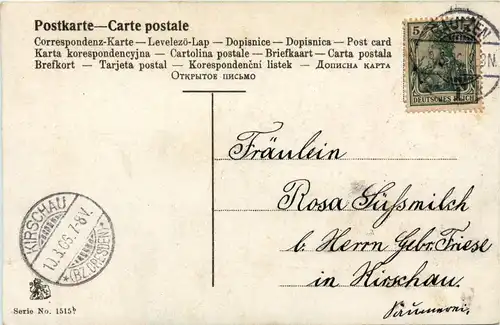 Postkarte—Carte postale
Correspondenz-Karte – Levelezö-Lap – Dopisnice – Dopisnica – Post card
Karta korespondencyjna – Cartolina postale – Briefkaart – Carta postala
Brefkort – Tarjeta postal – Korespondenční listek – Дописна карта
Открытое письмо
5
DEUTSCHES REICH
Fräulein
Rosa Süssmilch
b. Herrn Gebr. Friese
in Kirschau.
Säumerei.
KIRSCHAU
10.3.06. 7-8V.
*(BZ. DRESDEN)*
Serie No. 1515